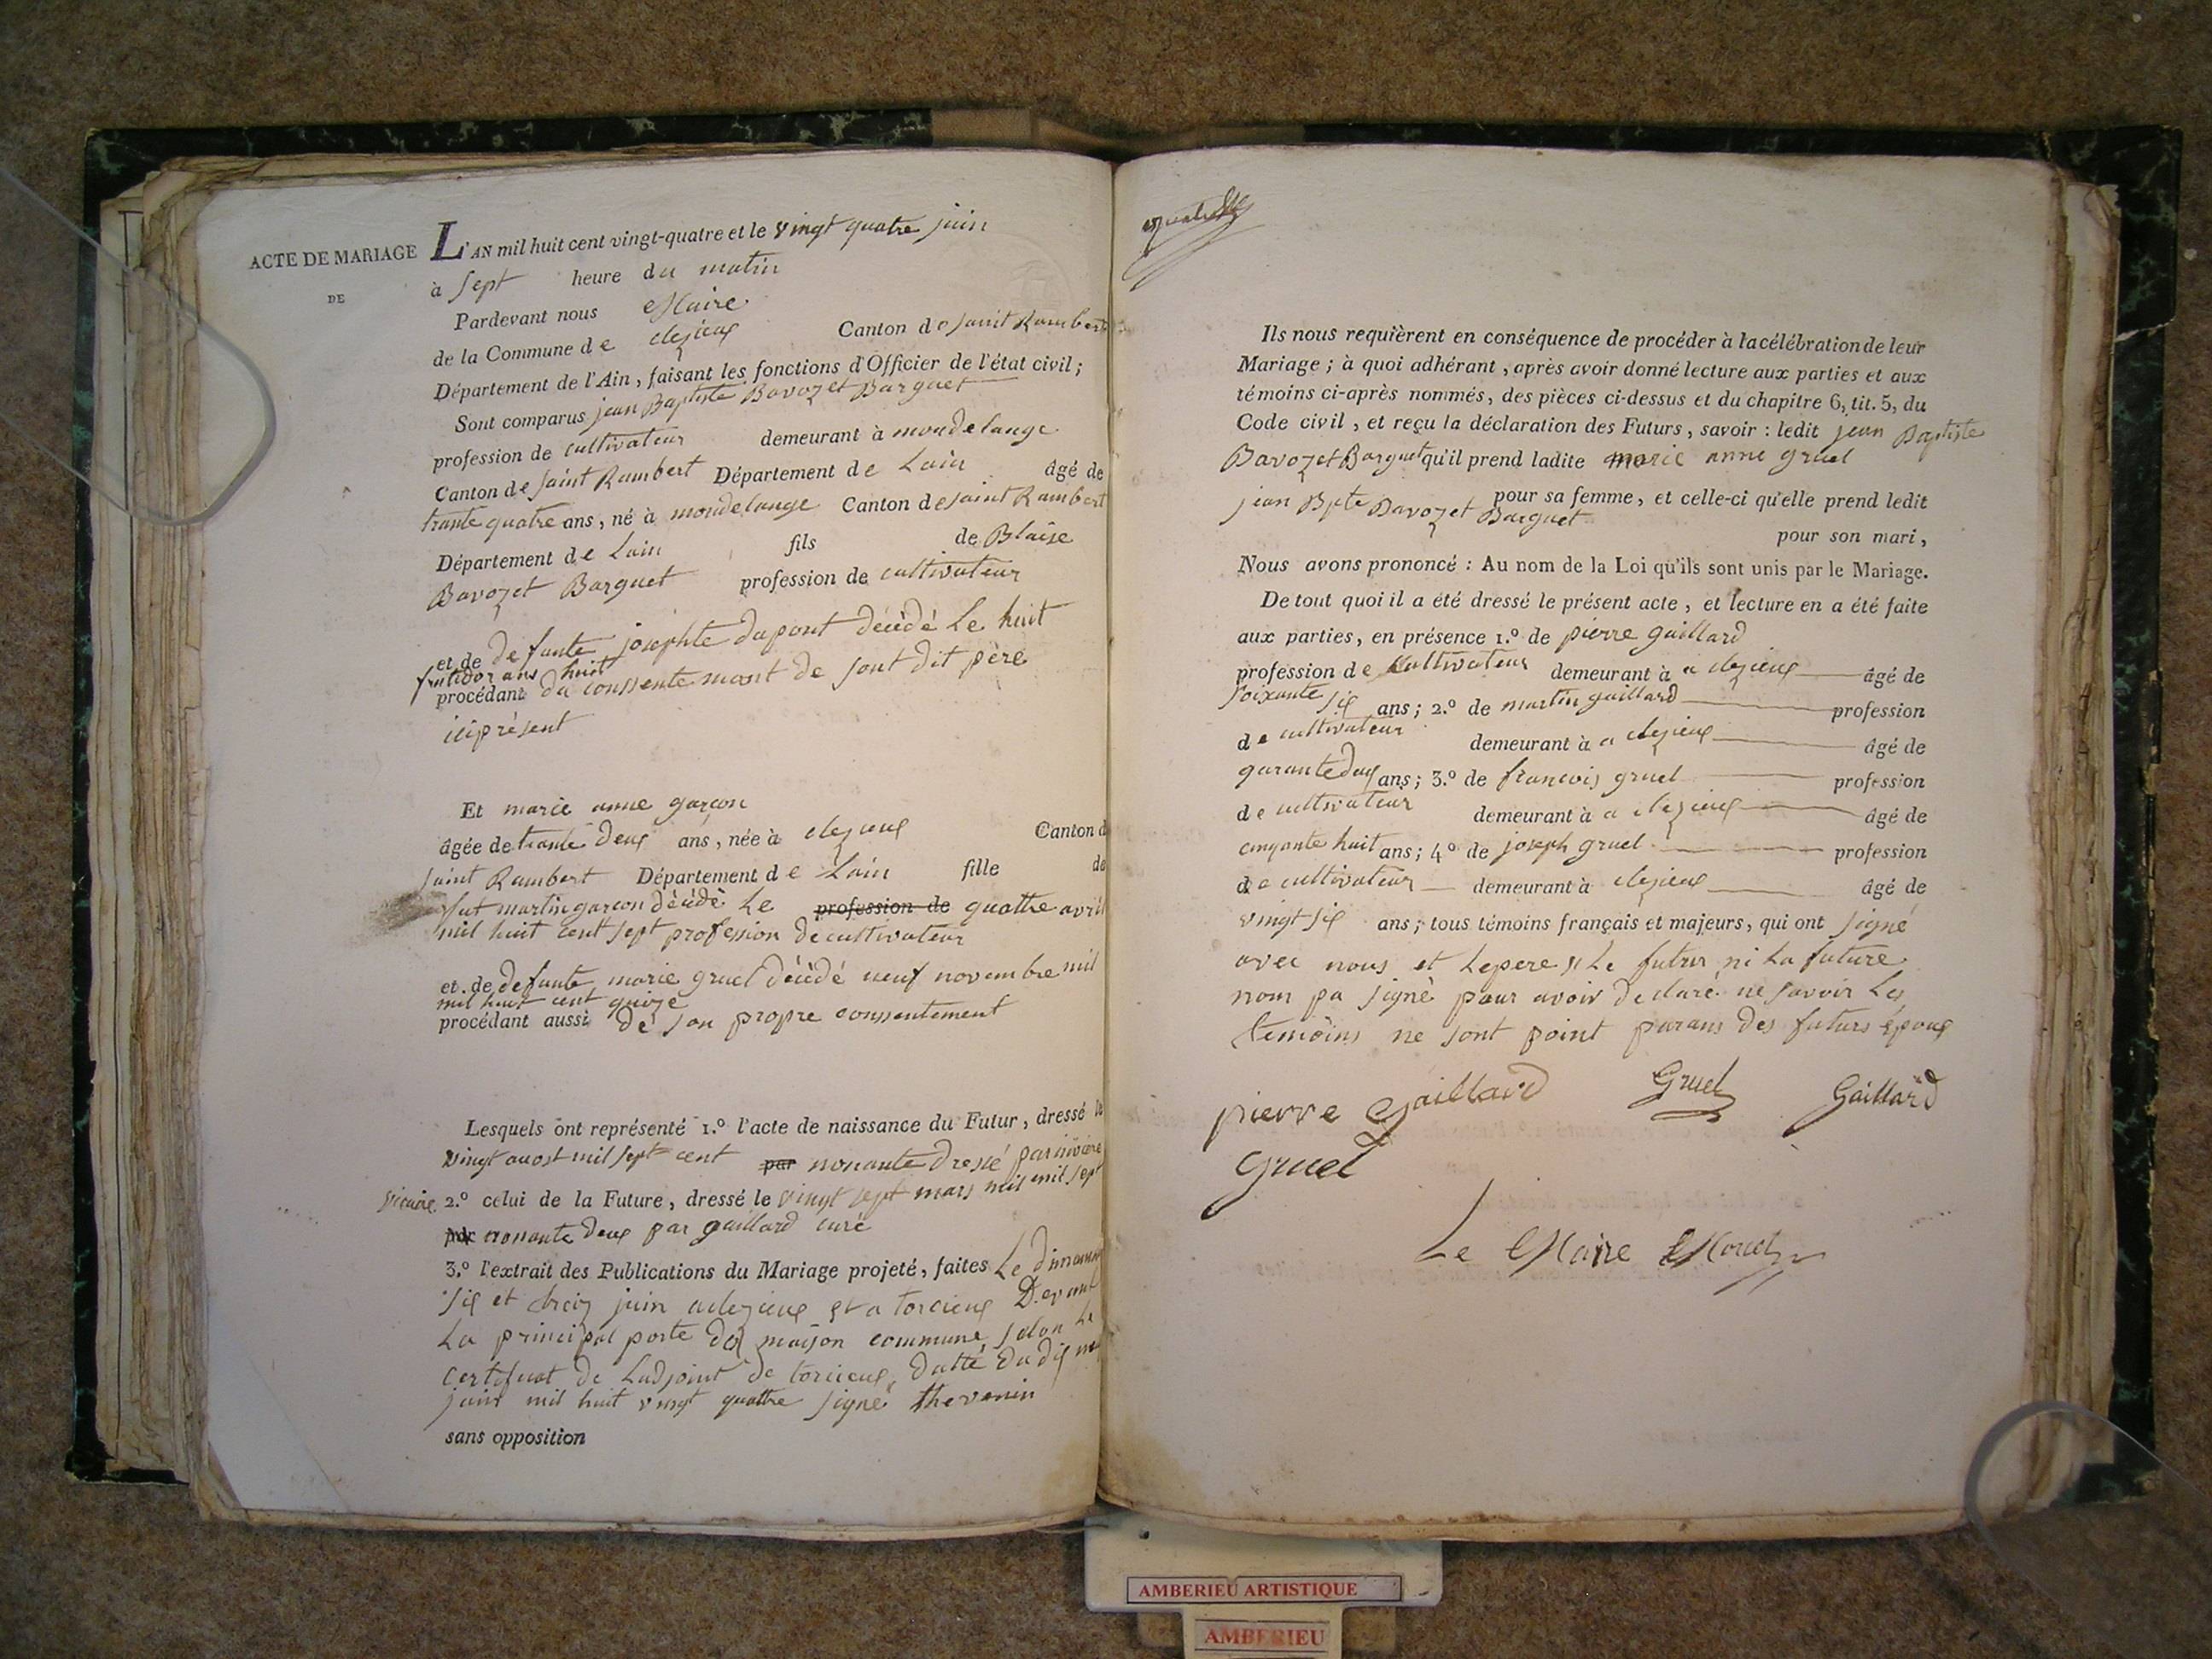 ACTE DE MARIAGE
DE
L'AN mil huit cent vingt-quatre et le vingt quatre juin
à sept heure du matin
Pardevant nous Maire
de la Commune de clezieux Canton de saint Rambert
Département de l'Ain, faisant les fonctions d'Officier de l'état civil;
Sont comparus jean Baptiste Bavozet Barguet
profession de cultivateur demeurant à mondelange
Canton de saint Rambert Département de Lain âgé de
trante quatre ans, né à mondelange Canton de saint Rambert
Département de Lain fils de Blaise
Bavozet Barguet profession de cultivateur
et de defante josephte dupont décédé Le huit
frutidor ans huit
procédant du conssentemant de sont dit père
ici présent
Et marie anne garçon
âgée de trante deux ans, née à clezieux Canton d
saint Rambert Département de Lain fille de
fut martin garcon décédé Le profession de quattre avril
mil huit cent sept profession de cultivateur
et de defante marie gruel décédé neuf novembre mil
mil huit cent quize
procédant aussi de son propre conssentement
Lesquels ont représenté 1.º l'acte de naissance du Futur, dressé le
vingt auost mil sept cent par nonante dressé par rivoire
vicaire 2.º celui de la Future, dressé le vingt sept mars mil mil sept
par nonante deux par gaillard curé
3.º l'extrait des Publications du Mariage projeté, faites Le dimanch
six et treiz juin aclezieux et a torcieux Devant
La principal porte des maison commune, selon Le
certificat de Ladjoint de torcieux, datté du dix neuf
juin mil huit vingt quattre signé thevenin
sans opposition
Ils nous requièrent en conséquence de procéder à la célébration de leur
Mariage; à quoi adhérant, après avoir donné lecture aux parties et aux
témoins ci-après nommés, des pièces ci-dessus et du chapitre 6, tit. 5, du
Code civil, et reçu la déclaration des Futurs, savoir: ledit jean Baptiste
Bavozet Barguet qu'il prend ladite marie anne gruel
pour sa femme, et celle-ci qu'elle prend ledit
jean Bpte Bavozet Barguet
pour son mari,
Nous avons prononcé: Au nom de la Loi qu'ils sont unis par le Mariage.
De tout quoi il a été dressé le présent acte, et lecture en a été faite
aux parties, en présence 1.º de pierre gaillard
profession de cultivateur demeurant à a clezieux âgé de
soixante six ans; 2.º de martin gaillard profession
de cultivateur demeurant à a clezieux âgé de
quarante deux ans; 3.º de francois gruel profession
de cultivateur demeurant à a clezieux âgé de
cinqante huit ans; 4.º de joseph gruel profession
de cultivateur demeurant à clezieux âgé de
vingt six ans; tous témoins français et majeurs, qui ont signé
avec nous et Lepere Le futur ni La future
nom pa signé pour avoir declaré ne savoir Les
temoins ne sont point parans des futurs époux
pierre Gaillard Gruel Gaillard
gruel
Le Maire
AMBERIEU ARTISTIQUE
AMBERIEU